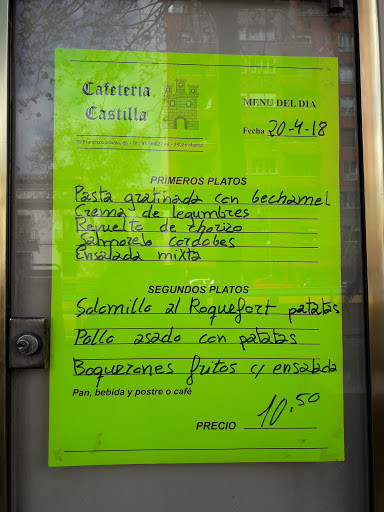 Cafeteria
Castilla
MENU DEL DIA
Fecha 20-4-18
PRIMEROS PLATOS
Pasta gratinada con bechamel
Crema de legumbres
Revuelto de chorizo
Salmorelo cordobes
Ensalada mixta
SEGUNDOS PLATOS
Solomillo al Roquefort patatas
Pollo asado con patatas
Boquerones fritos c/ ensalada
Pan, bebida y postre o café
PRECIO 10,50